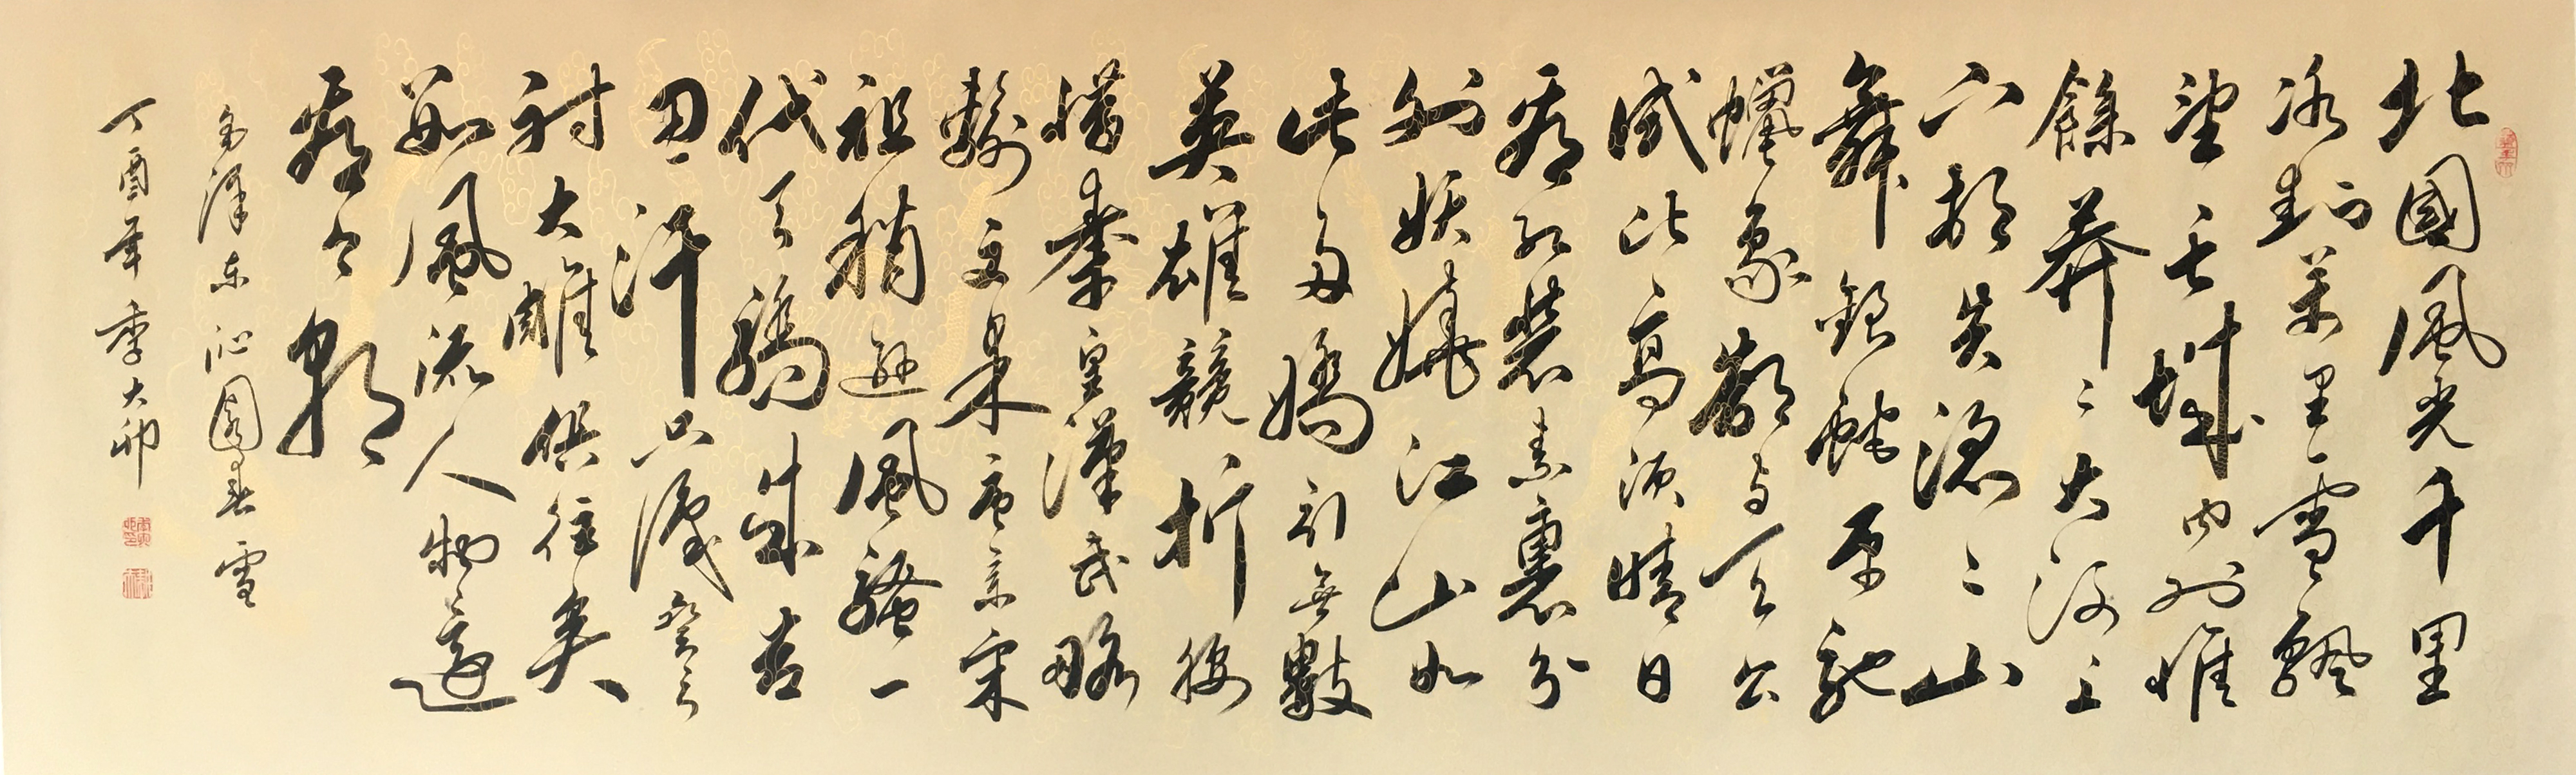 北國風光千里
冰封萬里雪飄
望長城內外惟
餘莽〻大河上
下頓失滔〻山
舞銀蛇原馳
蠟象欲與天公
試比高須晴日
看紅裝素裹分
外妖嬈江山如
此多嬌引無數
英雄競折腰
惜秦皇漢武略
輸文采唐宗宋
祖稍遜風騷一
代天驕成吉
思汗只識彎弓
射大雕俱往矣
數風流人物還
看今朝
毛澤东沁園春雪
丁酉年季大卯